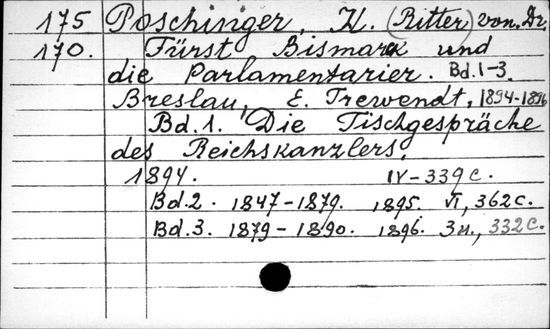 175 Poschinger, H. (Ritter) von. Dr.
170. Fürst Bismarck und
die Parlamentarier. Bd. 1-3.
Breslau, E. Trewendt, 1894-1896
Bd. 1. Die Tischgespräche
des Reichskanzlers,
1894. IV-339 c.
Bd. 2. 1847-1879. 1895. VI, 362 c.
Bd. 3. 1879-1890. 1896. 3 н., 332 c.